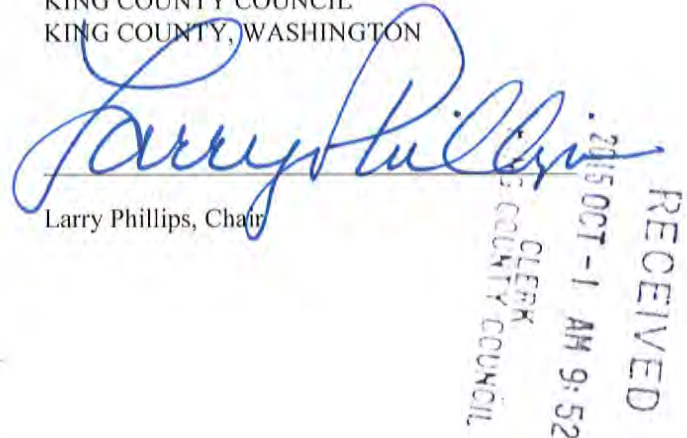 KING COUNTY COUNCIL
KING COUNTY, WASHINGTON
Larry Phillips
Larry Phillips, Chair
RECEIVED
2015 OCT -1 AM 9:52
CLERK
COUNTY COUNCIL